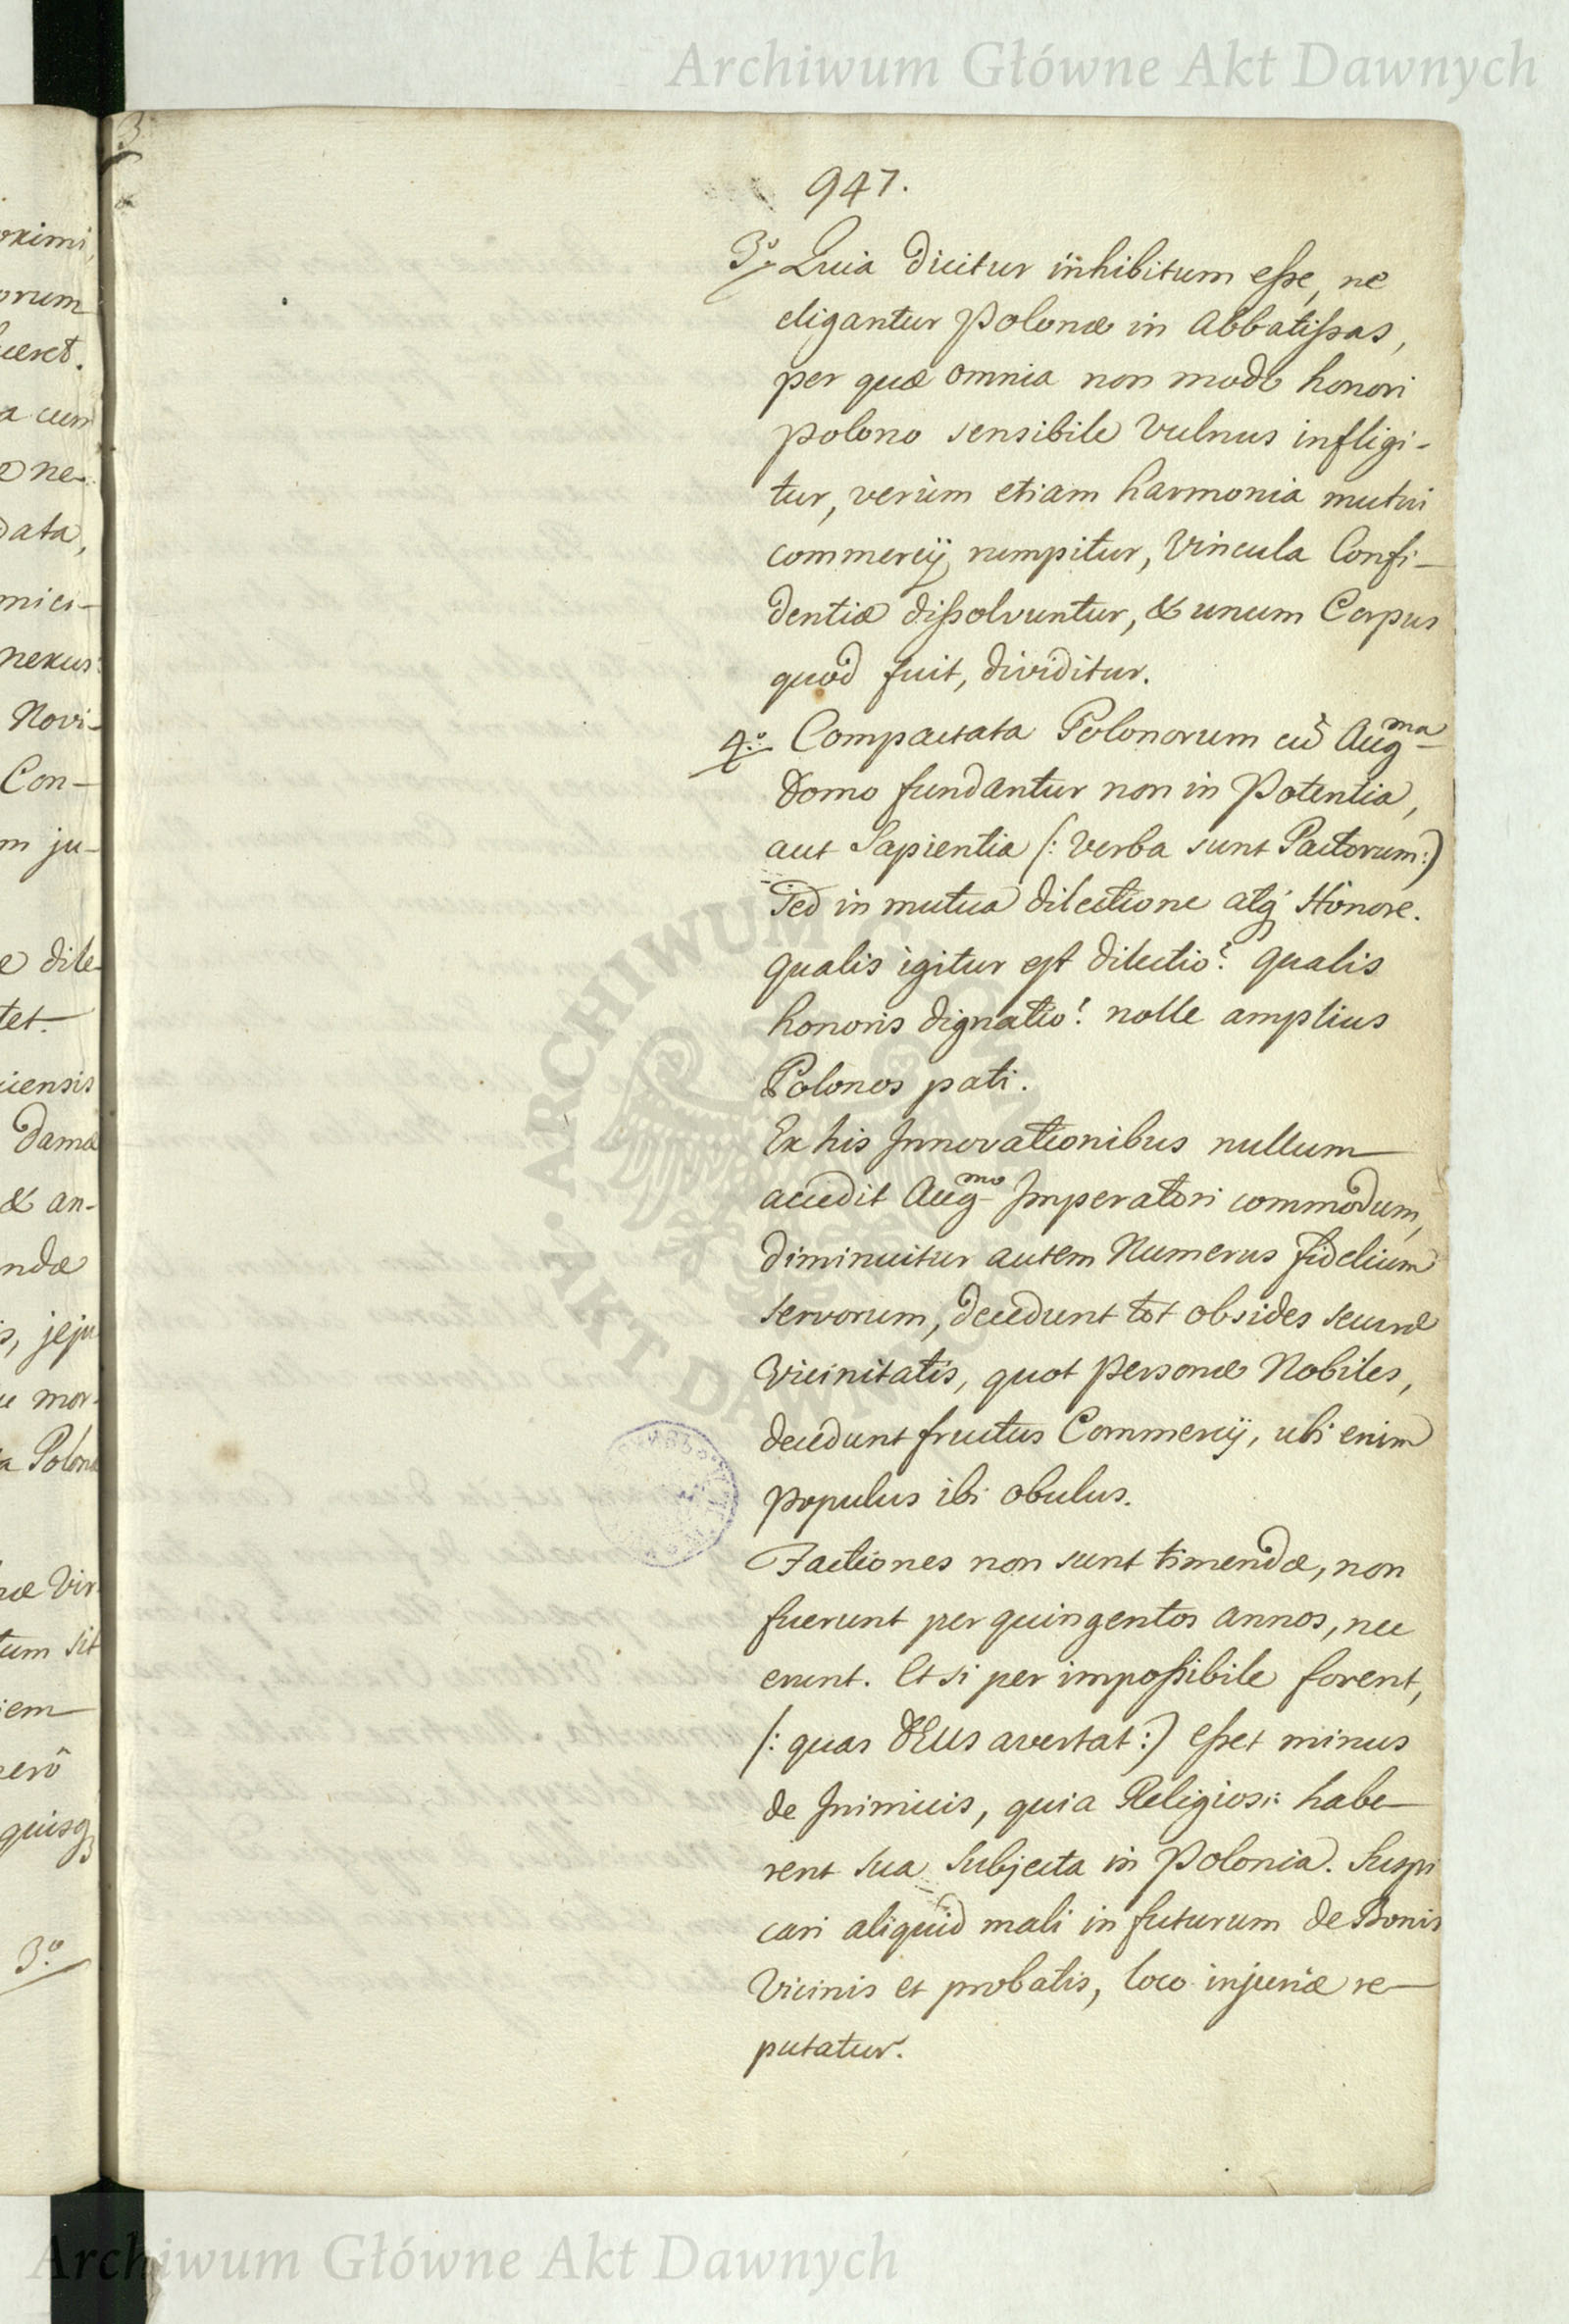 Archiwum Główne Akt Dawnych
947.
3º Quia dicitur inhibitum esse, ne
eligantur Polonæ in Abbatissas,
per quæ omnia non modo honori
polono sensibile vulnus infligi-
tur, verùm etiam harmonia mutui
commercij rumpitur, vincula Confi-
dentiæ dissolvuntur, & unum Corpus
quod fuit, dividitur.
4º Compactata Polonorum cũ Augma
Domo fundantur non in Potentia,
aut Sapientia (: verba sunt Pactorum:)
sed in mutua dilectione atq Honore.
qualis igitur est dilectio? qualis
honoris dignatio! nolle amplius
Polonos pati.
Ex his Innovationibus nullum
accedit Augmo Imperatori commodum,
diminuitur autem Numerus fidelium
servorum, decedunt tot obsides securæ
Vicinitatis, quot personæ Nobiles,
decedunt fructus Commercij, ubi enim
populus ibi obulus.
Factiones non sunt timendæ, non
fuerunt per quingentos annos, nec
erunt. Et si per impossibile forent,
(: quas DEUS avertat :) esset minus
de Inimicis, quia Religiosi: habe-
rent sua Subjecta in Polonia. Suspi
cari aliquid mali in futurum de Bonis
Vicinis et probatis, loco injuriæ re-
putatur.
oximi,
orum
ueret.
a cum
e ne-
data,
mici-
nexus
Novi-
Con-
m ju-
e dile-
tet.
ciensis
Damæ
& an-
ndæ
s, jeju
mor-
a Polonæ
næ Vir-
tum sit
iem
erô
quisq
3º
ARCHIWUM GŁÓWNE AKT DAWNYCH
Archiwum Główne Akt Dawnych